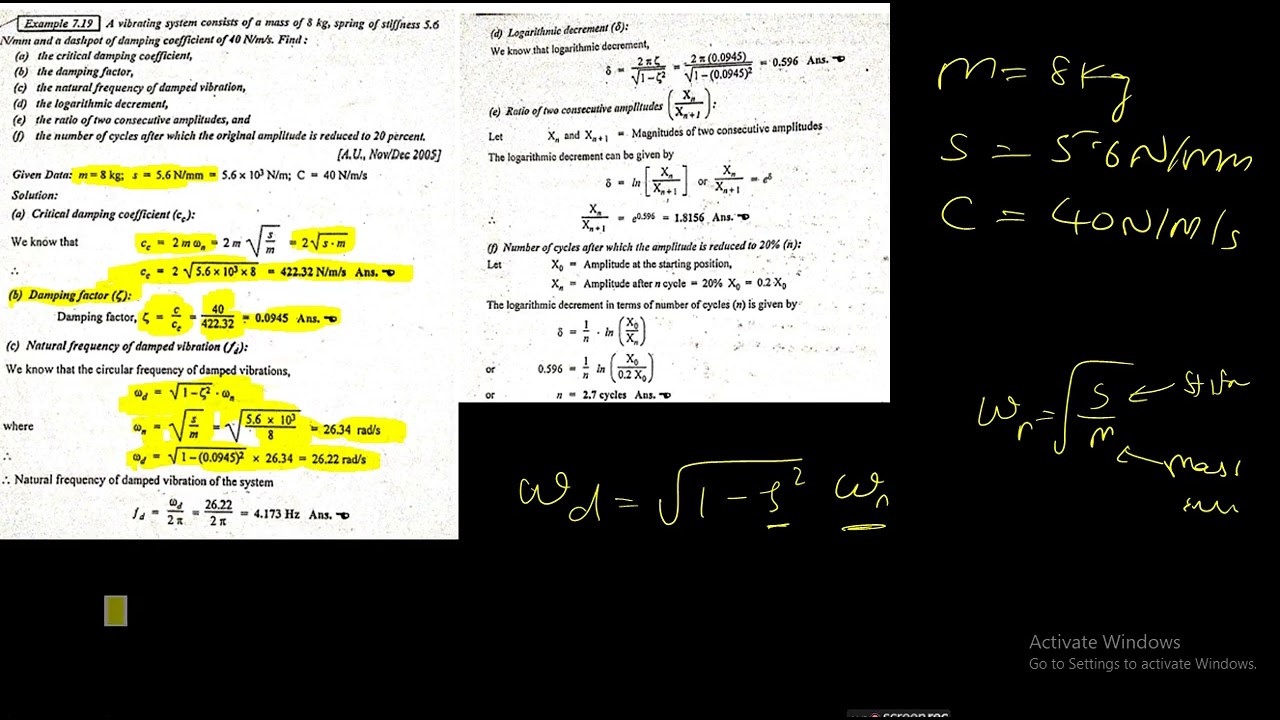 Example 7.19 A vibrating system consists of a mass of 8 kg, spring of stiffness 5.6
N/mm and a dashpot of damping coefficient of 40 N/m/s. Find :
(a) the critical damping coefficient,
(b) the damping factor,
(c) the natural frequency of damped vibration,
(d) the logarithmic decrement,
(e) the ratio of two consecutive amplitudes, and
(f) the number of cycles after which the original amplitude is reduced to 20 percent.
[A.U., Nov/Dec 2005]
Given Data: m = 8 kg; s = 5.6 N/mm = 5.6 × 10³ N/m; C = 40 N/m/s
Solution:
(a) Critical damping coefficient (c_c):
We know that c_c = 2 m ω_n = 2 m √(s/m) = 2√(s · m)
∴ c_c = 2 √(5.6 × 10³ × 8) = 422.32 N/m/s Ans.
(b) Damping factor (ζ):
Damping factor, ζ = c/c_c = 40/422.32 = 0.0945 Ans.
(c) Natural frequency of damped vibration (f_d):
We know that the circular frequency of damped vibrations,
ω_d = √(1 − ζ²) · ω_n
where ω_n = √(s/m) = √(5.6 × 10³/8) = 26.34 rad/s
∴ ω_d = √(1 − (0.0945)²) × 26.34 = 26.22 rad/s
∴ Natural frequency of damped vibration of the system
f_d = ω_d/2π = 26.22/2π = 4.173 Hz Ans.
(d) Logarithmic decrement (δ):
We know that logarithmic decrement,
δ = 2πζ/√(1 − ζ²) = 2π(0.0945)/√(1 − (0.0945)²) = 0.596 Ans.
(e) Ratio of two consecutive amplitudes (X_n/X_n+1):
Let X_n and X_n+1 = Magnitudes of two consecutive amplitudes
The logarithmic decrement can be given by
δ = ln [X_n/X_n+1] or X_n/X_n+1 = e^δ
∴ X_n/X_n+1 = e^0.596 = 1.8156 Ans.
(f) Number of cycles after which the amplitude is reduced to 20% (n):
Let X₀ = Amplitude at the starting position,
X_n = Amplitude after n cycle = 20% X₀ = 0.2 X₀
The logarithmic decrement in terms of number of cycles (n) is given by
δ = 1/n · ln (X₀/X_n)
or 0.596 = 1/n ln (X₀/0.2 X₀)
or n = 2.7 cycles Ans.
m = 8 kg
S = 5.6 N/mm
C = 40 N/m/s
ω_n = √(s/m)
mass
ω_d = √(1 − ζ²) ω_n
Activate Windows
Go to Settings to activate Windows.